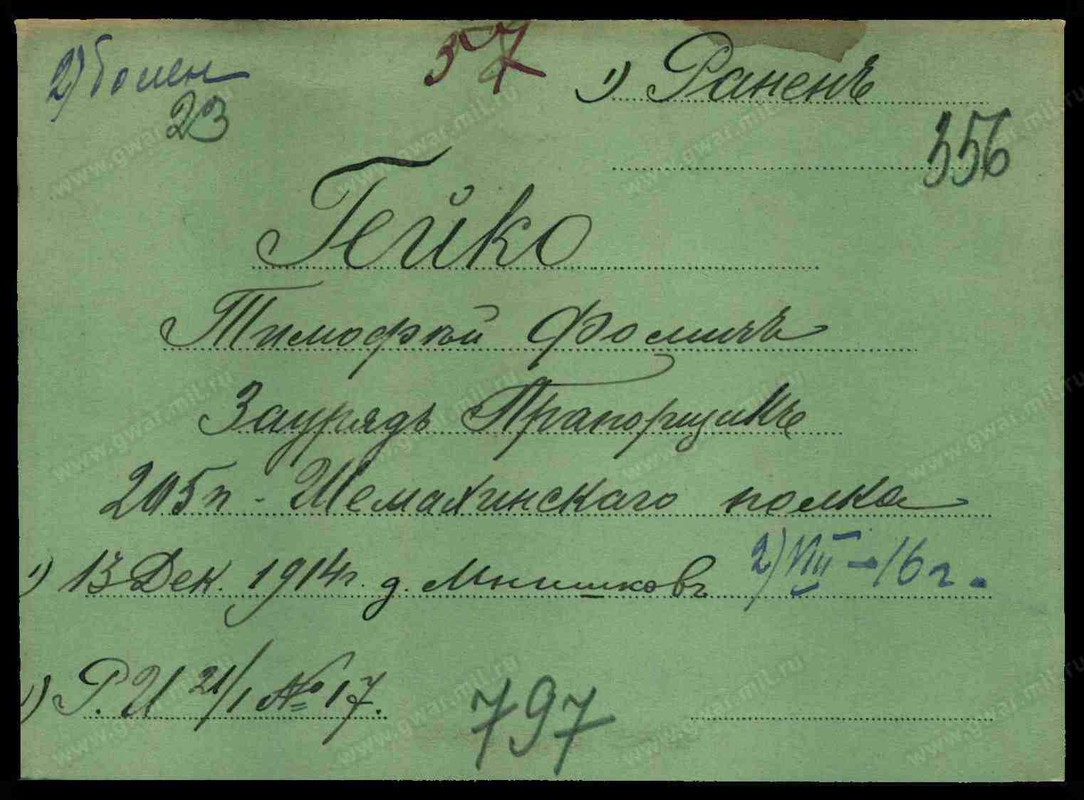 2) болен
57
1) Раненъ
23
356
Гейко
Тимофѣй Фомичъ
Заурядъ Прапорщикъ
205 п - Шемахинскаго полка
1) 13 Дек. 1914 г. д. Мнишковъ 2) VIII - 16 г.
1) Р. И 21/1 № 17.
797